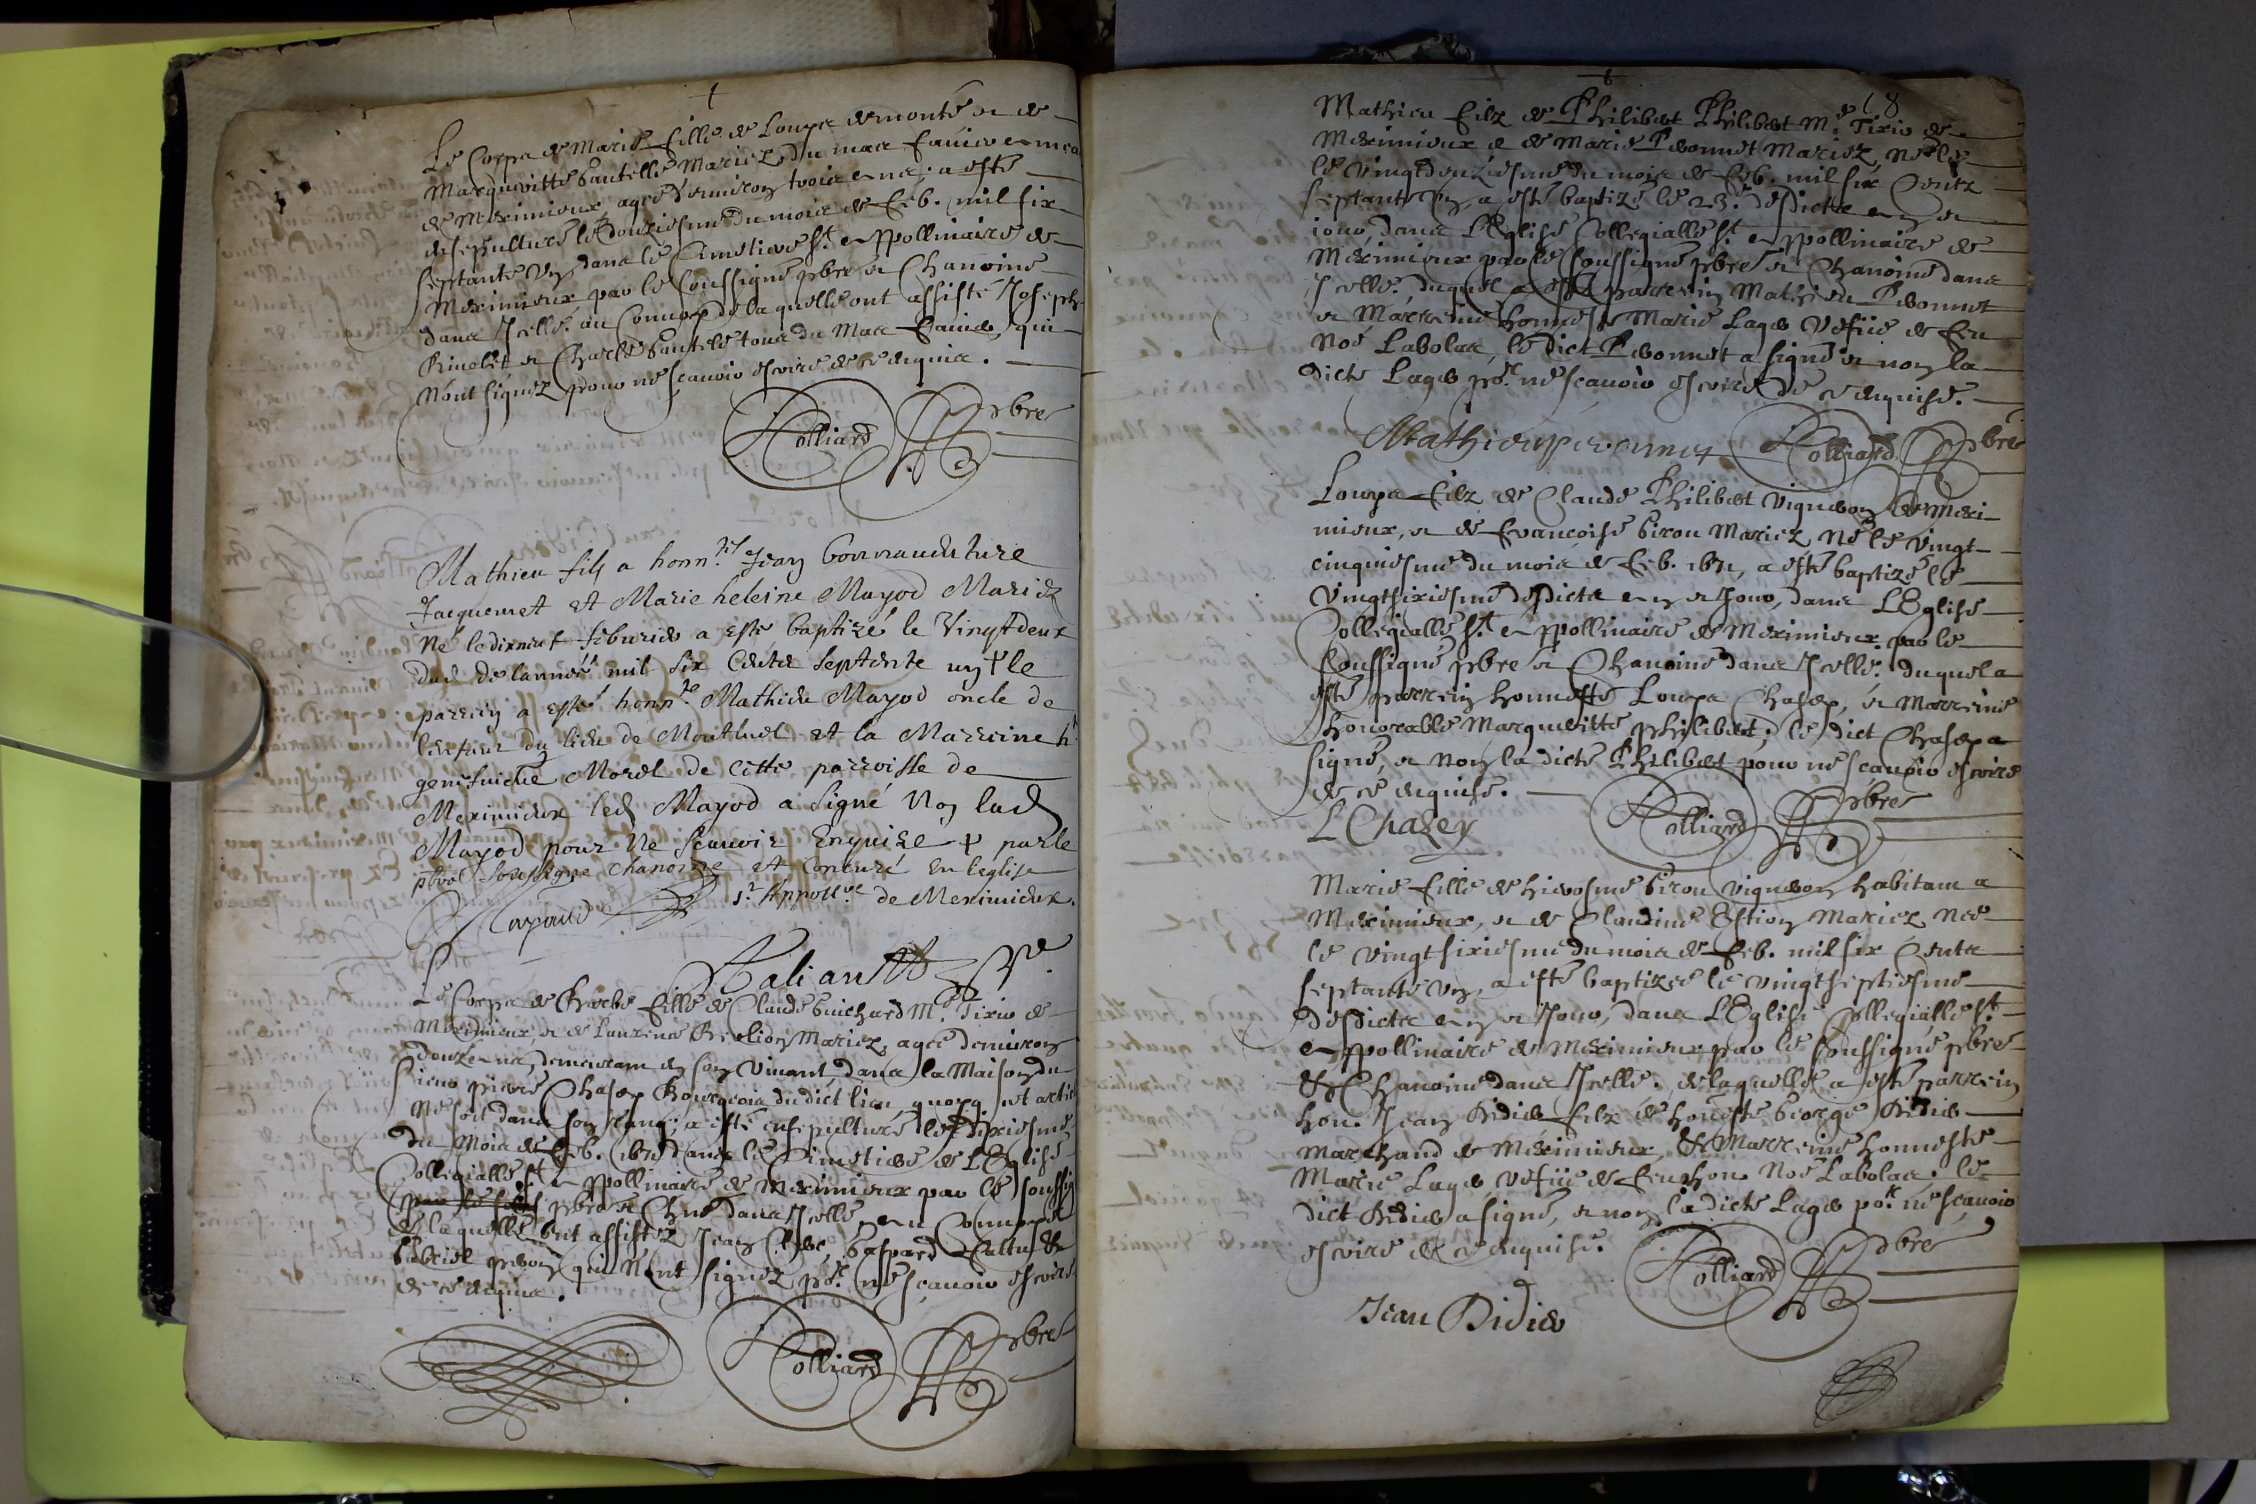 Le Corps de Marie fille de Louys demonté et de
Margueritte bautelle Mariez du mas
de Meximieux agée d'environ trois ans; a esté
ensepulturé le douziesme du mois de feb. mil six
septante Un dans le Cimetiere St. Appollinaire de
Meximieux par le Soussigné pbre et Chanoine
dans Icelle. au Convoy de laquelle ont assisté Joseph
Rinolet et Charle bautele tous du Mas qui
N'ont signez pour ne scavoir escrire de ce enquis.
Rolliard pbre
Mathieu fils a honn. Jean bonnauenture
Jacquemet et Marie heleine Mayod Mariez
Né le dixneuf feburier a esté baptizé le Vingtdeux
dud. de lannée mil six Cents Septente un le
parrein a esté honn. Mathieu Mayod oncle de
lenfant du lieu de Montluel et la Marreine h.
genefuiefue Morel de Cette parroisse de
Meximieux led. Mayod a Signé Non lad.
Mayod pour Ne Scauoir Enquize parle
pbre Soussigné chanoine et Concuré En leglise
St. Appoll.re de Meximieux.
Le Corps de fille de Claude Guichard M.e Tixier de
Meximieux, et de Laurence Mariez, agée denviron
douze ans, demeurant en son Vivant dans la Maison du
Sieur pierre Chasey Bourgeois du dict lieu quoyq.
Ne soit dans son rang: a esté ensepulturé le dixiesme
du Mois de feb. 1671 dans le Cimetiere de L'Eglise
Collegialle St. Appollinaire de Meximieux par le soussig
pbre et Chne dans Icelle, au Convoy de
de laquelle ont assistez Jean Clerc, Gaspard et
Gabriel qui N'ont signez po.r ne scavoir escrire
de ce enquis.
Rolliard pbre
18
Mathieu filz de Philibert Philibert M.e Tixier de
Meximieux et de Marie Peronnet Mariez, Né le
le Vingtdeuziesme du mois de feb. mil six Cents
septante Un a esté baptizé le 23.e desdicts an et
iour, dans L'Eglise Collegialle St. Appollinaire de
Meximieux par le Soussigné pbre et Chanoine dans
Icelle. duquel a esté parrein Mathieu Peronnet
et Marreine honneste Marie Lager Vefue de feu
Noé Labolas, le dict Peronnet a signé et non la
dicte Lager po.r ne scavoir escrire de ce enquise.
Mathieu peronnet Rolliard pbre
Louys filz de Claude Philibert Vigneron de Mexi-
mieux, et de Francoise biron Mariez, Né le Vingt-
cinquiesme du mois de feb. 1671, a esté baptizé le
Vingtsixiesme desdicts an et Jour, dans L'Eglise
Collegialle St. Appollinaire de Meximieux par le
Soussigné pbre et Chanoine dans Icelle. duquel a
esté parrein honneste Louys Chasey, et Marreine
honorable Margueritte philibert; le dict Chasey a
signé, et Non la dicte Philibert pour ne scavoir escrire
de ce enquise.
L Chasey Rolliard pbre
Marie fille de hierosme biron Vigneron habitant a
Meximieux, et de Claudine Estion Mariez Née
le Vingtsixiesme du mois de feb. mil six Cents
septante Un, a esté baptizée le Vingtseptiesme
desdicts an et Jour, dans L'Eglise Collegialle St.
Appollinaire de Meximieux par le Soussigné pbre
et Chanoine dans Icelle. de laquelle a esté parrein
hon. Jean Didier filz de honeste George Didier
marchand de Meximieux, et Marreine honneste
Marie Lager Vefue de feu hon. Noé Labolas. le
dict Didier a signé, et non la dicte Lager po.r ne scavoir
escrire de ce enquise.
Rolliard pbre
Jean Didier